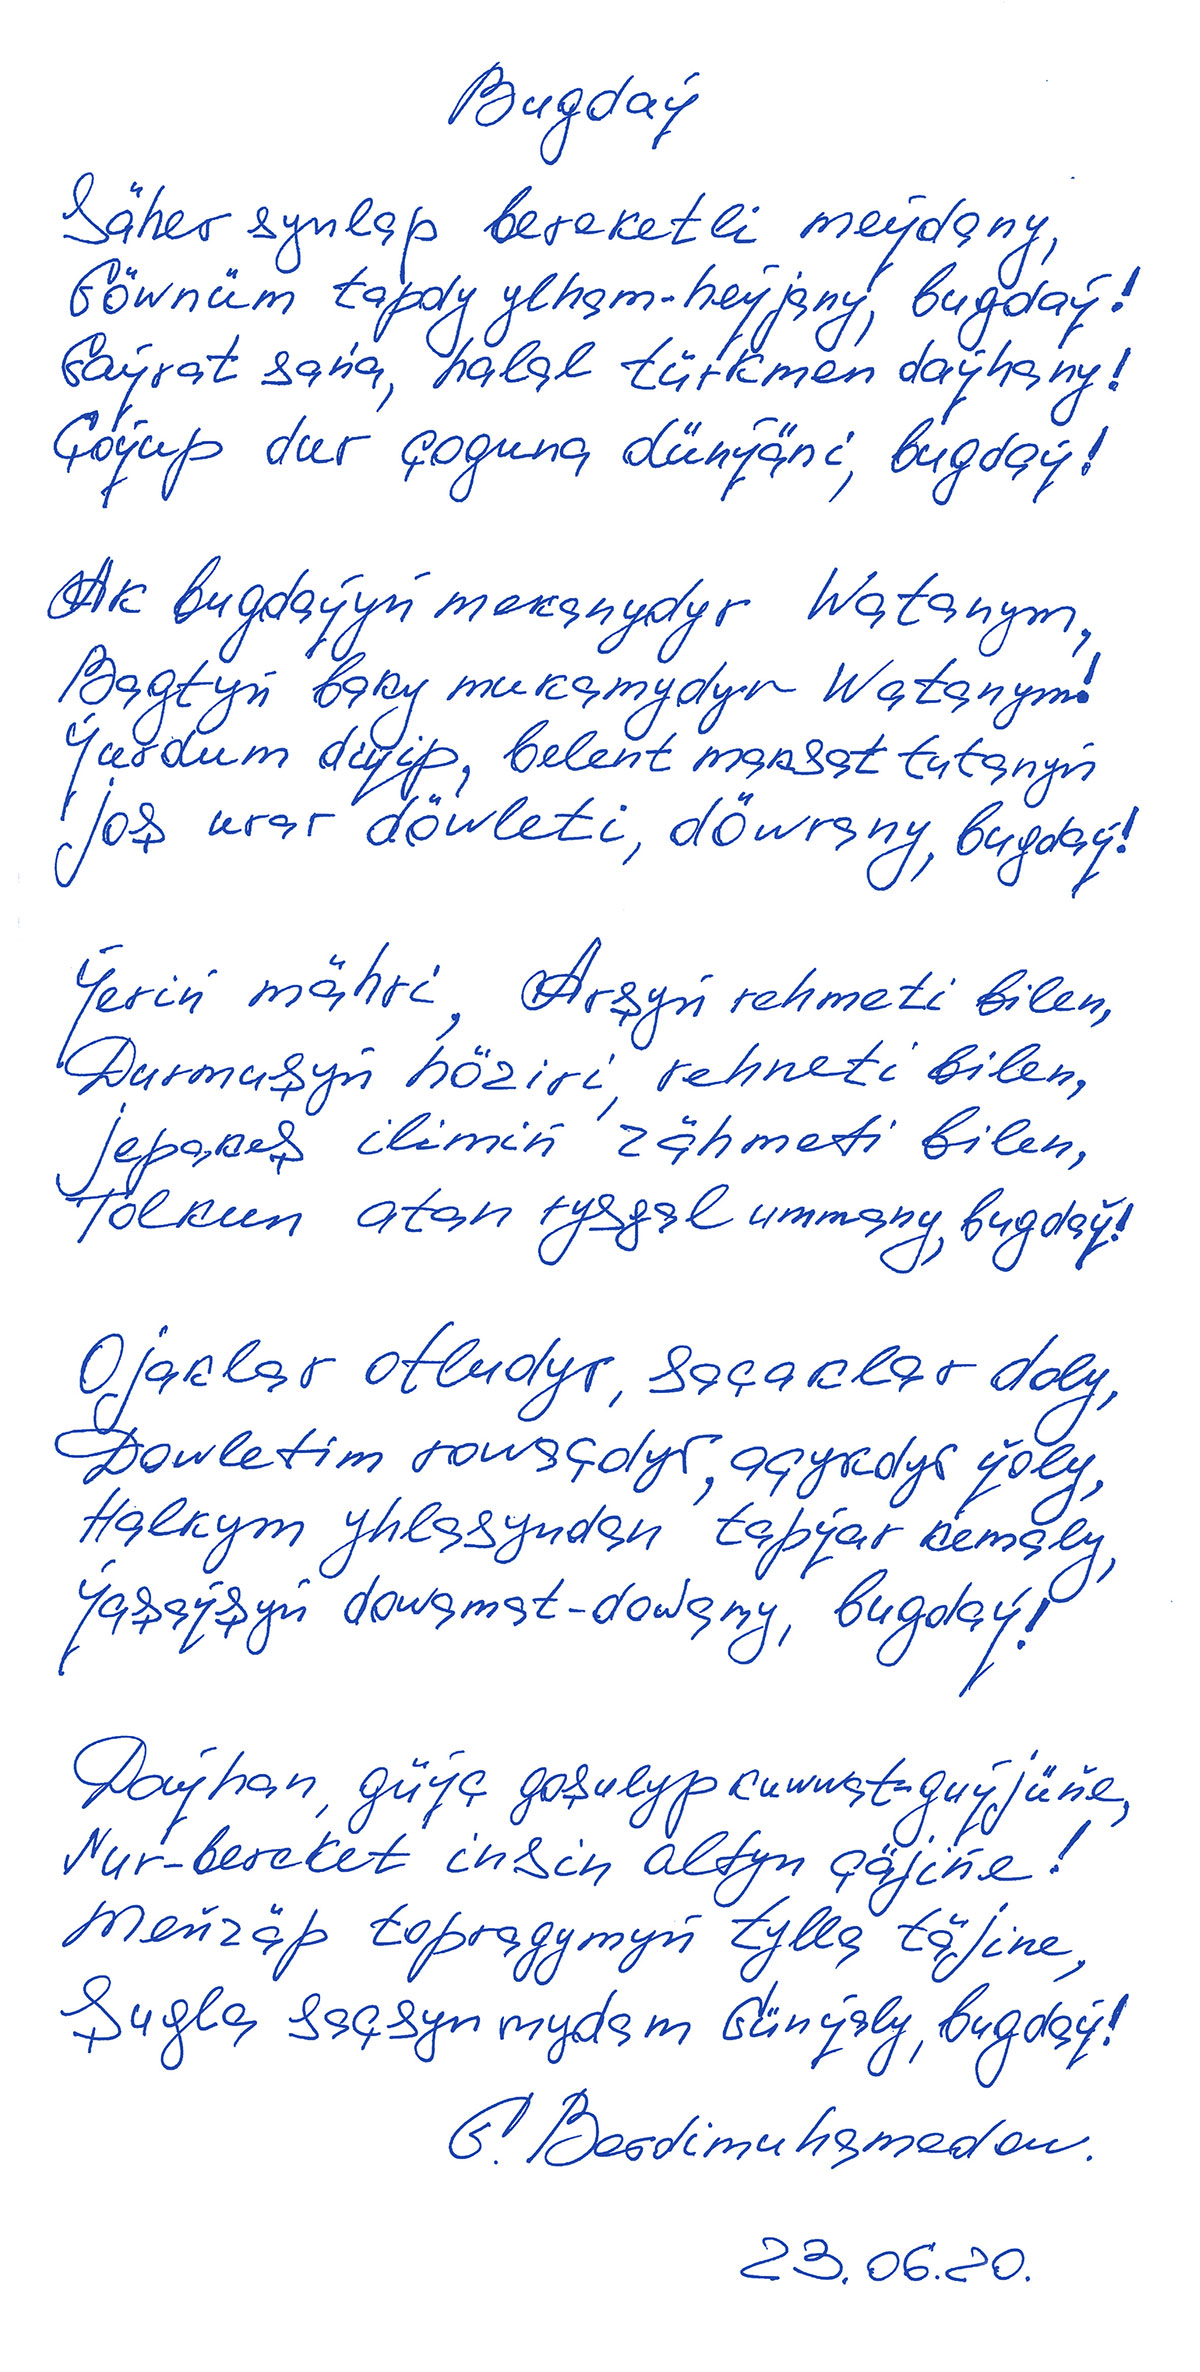 Bugdaý
Säher synlap bereketli meýdany,
Göwnüm tapdy ylham-heýjany, bugdaý!
Gaýrat saňa, halal türkmen daýhany!
Çoýup dur çoguna dünýäni, bugdaý!
Ak bugdaýyň mekanydyr Watanym,
Bagtyň baky mukamydyr Watanym!
Ýurdum diýip, belent maksat tutanyň
Joş urar döwleti, döwrany, bugdaý!
Ýeriň mähri, Arşyň rehmeti bilen,
Durmuşyň höziri, rehneti bilen,
Jepakeş ilimiň zähmeti bilen,
Tolkun atan rysgal ummany, bugdaý!
Ojaklar otludyr, saçaklar doly,
Döwletim rowaçdyr, açykdyr ýoly,
Halkym yhlasyndan tapýar kemaly,
Ýaşaýşyň dowamat-dowamy, bugdaý!
Daýhan, güýç goşulyp kuwwat-guýjüňe,
Nur-bereket insin altyn çäjiňe!
Meňzäp topragymyň tylla täjine,
Şugla saçsyn mydam Günýaly, bugdaý!
G. Berdimuhamedow.
23.06.20.